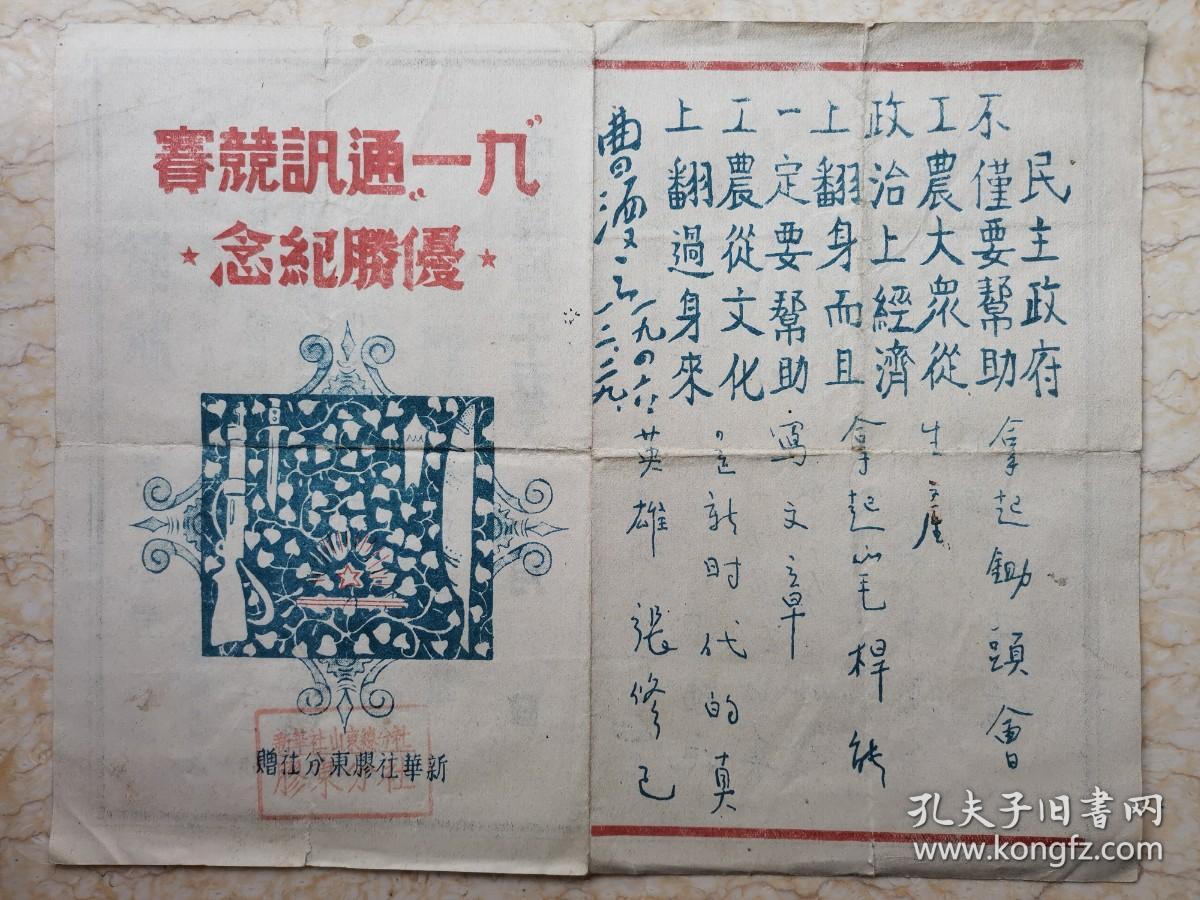 “九一”通訊競賽
優勝紀念
新華社山東總分社
膠東分社
新華社膠東分社贈
民主政府
不僅要幫助
工農大眾從
政治上經濟
上翻身而且
一定要幫助
工農從文化
上翻過身來
曹漫之 一九四六、十二、二九、
拿起鋤頭會
生產
拿起毛桿能
寫文章
是新时代的真
英雄 張修己
孔夫子旧书网
www.kongfz.com